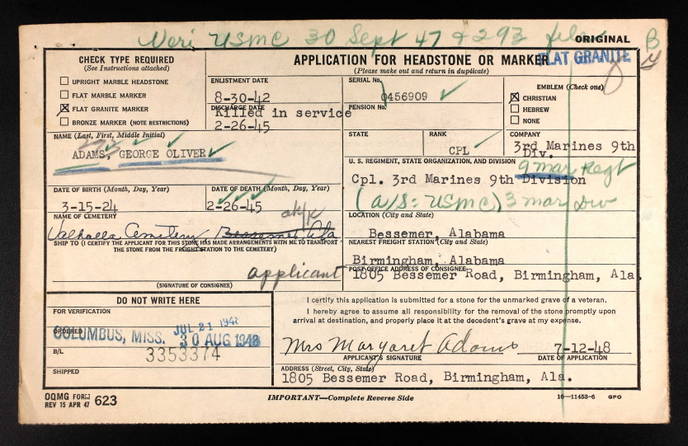 Veri USMC 30 Sept 47 & 293 file
ORIGINAL
B
CHECK TYPE REQUIRED
(See Instructions attached)
UPRIGHT MARBLE HEADSTONE
FLAT MARBLE MARKER
FLAT GRANITE MARKER
BRONZE MARKER (NOTE RESTRICTIONS)
APPLICATION FOR HEADSTONE OR MARKER
FLAT GRANITE
(Please make out and return in duplicate)
ENLISTMENT DATE
8-30-42
DISCHARGE DATE
Killed in service
2-26-45
SERIAL No.
0456909
PENSION No.
EMBLEM (Check one)
CHRISTIAN
HEBREW
NONE
STATE
RANK
CPL
COMPANY
3rd Marines 9th
Div.
NAME (Last, First, Middle Initial)
ADAMS, GEORGE OLIVER
U. S. REGIMENT, STATE ORGANIZATION, AND DIVISION
9 mar Regt
Cpl. 3rd Marines 9th Division
(a/s: USMC) 3 mar Div
DATE OF BIRTH (Month, Day, Year)
3-15-24
DATE OF DEATH (Month, Day, Year)
2-26-45
NAME OF CEMETERY
Valhalla Cemetery Bessemer Ala
LOCATION (City and State)
Bessemer, Alabama
SHIP TO (I CERTIFY THE APPLICANT FOR THIS STONE HAS MADE ARRANGEMENTS WITH ME TO TRANSPORT
THE STONE FROM THE FREIGHT STATION TO THE CEMETERY)
NEAREST FREIGHT STATION (City and State)
Birmingham, Alabama
applicant
(SIGNATURE OF CONSIGNEE)
POST OFFICE ADDRESS OF CONSIGNEE
1805 Bessemer Road, Birmingham, Ala.
DO NOT WRITE HERE
FOR VERIFICATION
JUL 21 1948
ORDERED
COLUMBUS, MISS. 30 AUG 1948
B/L
3353374
SHIPPED
I certify this application is submitted for a stone for the unmarked grave of a veteran.
I hereby agree to assume all responsibility for the removal of the stone promptly upon
arrival at destination, and properly place it at the decedent's grave at my expense.
Mrs Margaret Adams
7-12-48
APPLICANT'S SIGNATURE
DATE OF APPLICATION
ADDRESS (Street, City, State)
1805 Bessemer Road, Birmingham, Ala.
OQMG FORM
REV 15 APR 47 623
IMPORTANT—Complete Reverse Side
16—11453-6 GPO